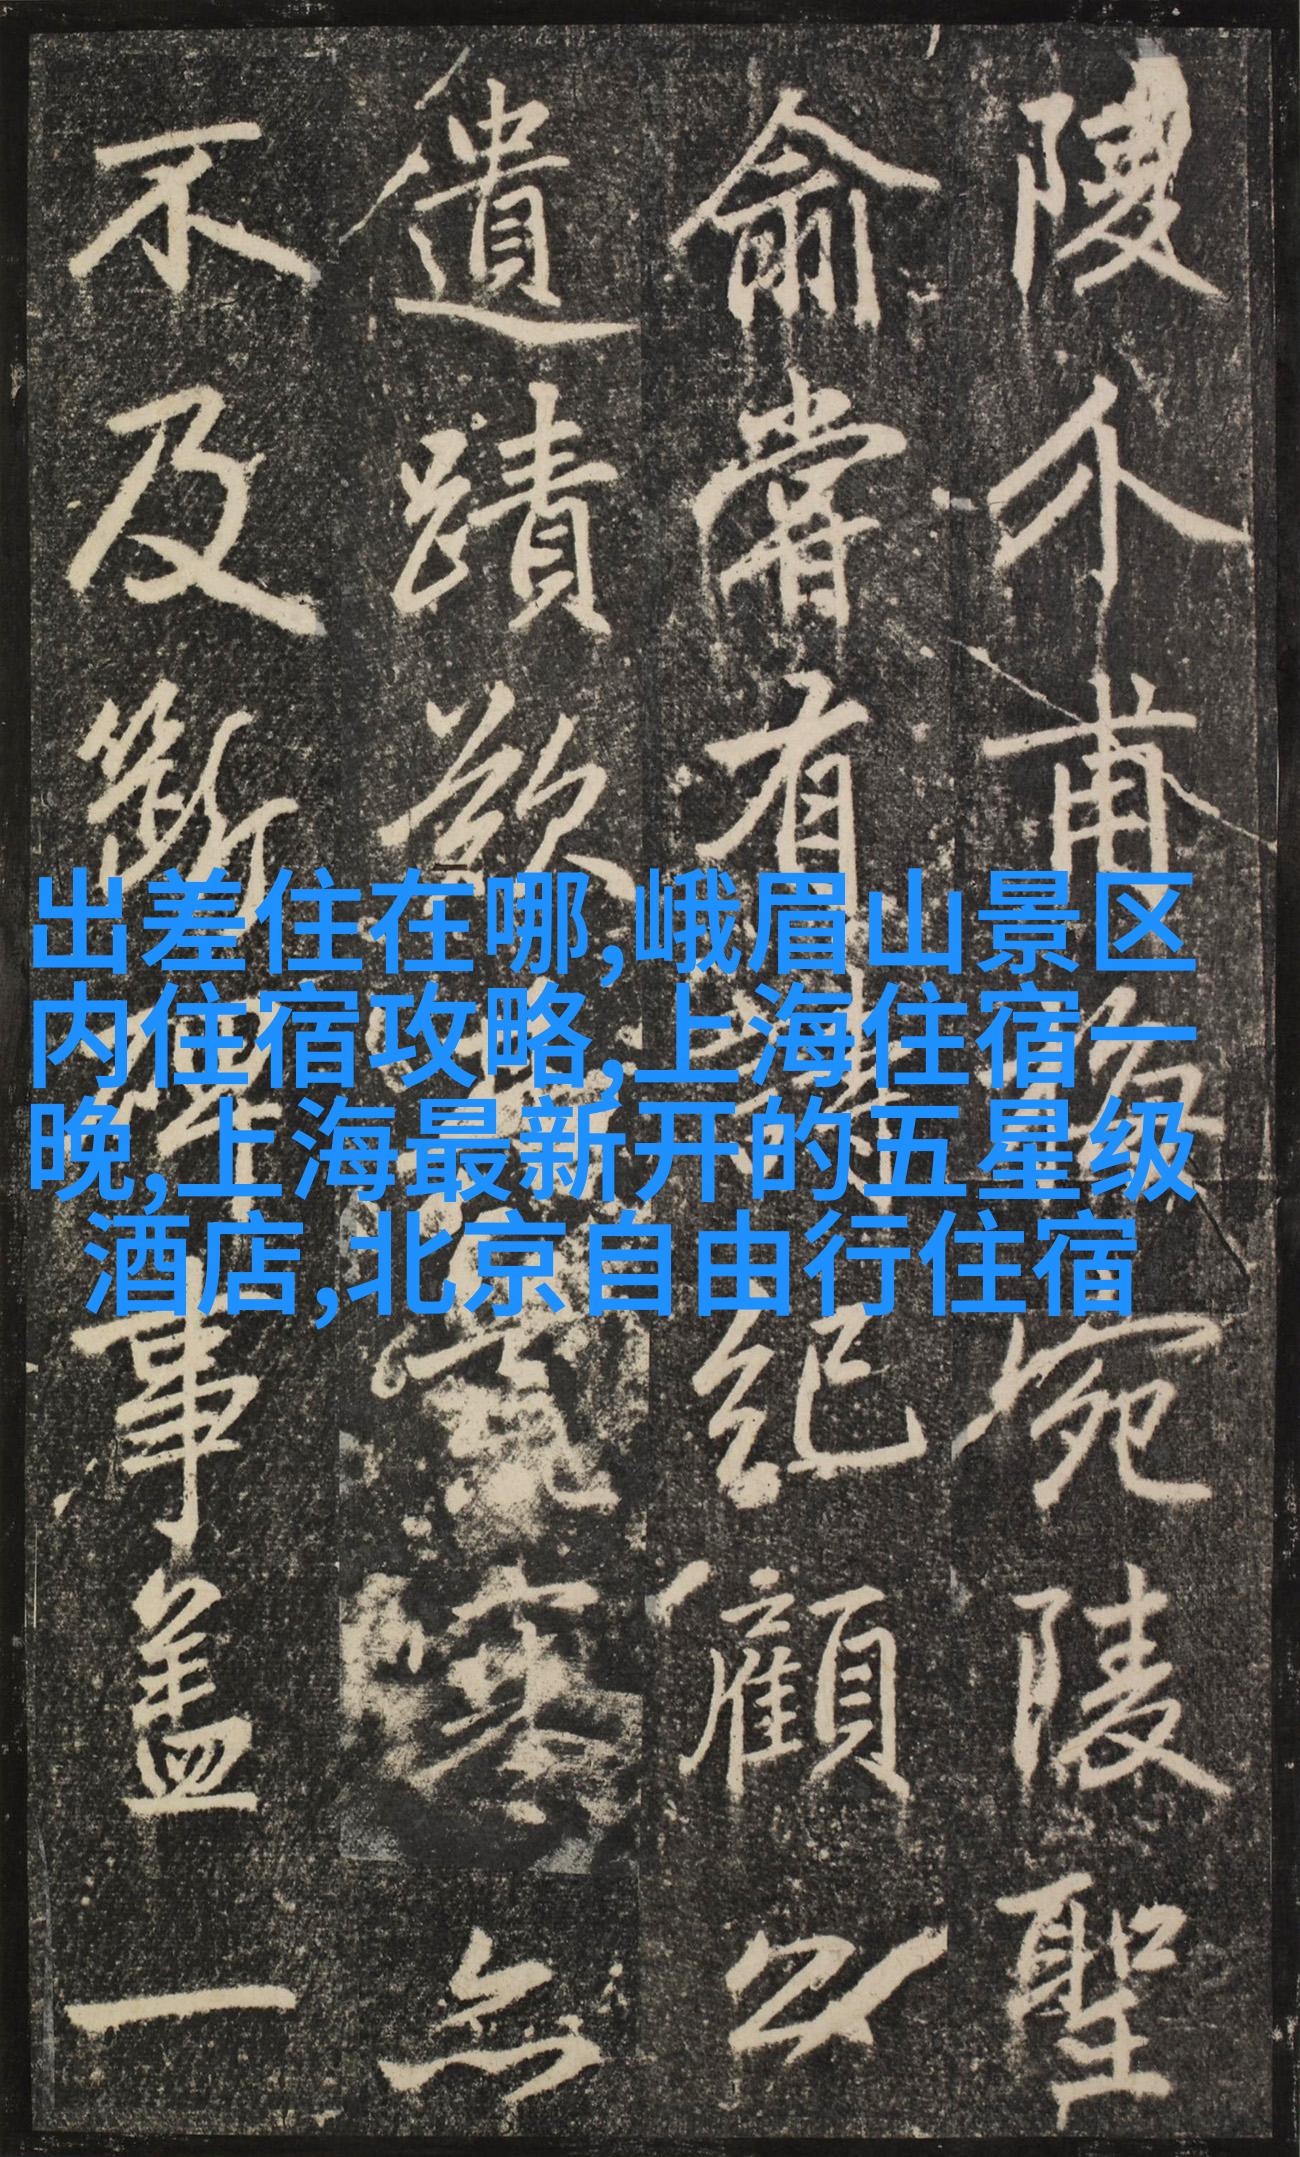 陵介甫
宛陵聖
俞嘗有
紀顧以
遺蹟欲
無
不及斷碑事蓋一
出差住在哪,峨眉山景区
内住宿攻略,上海住宿一
晚,上海最新开的五星级
酒店,北京自由行住宿